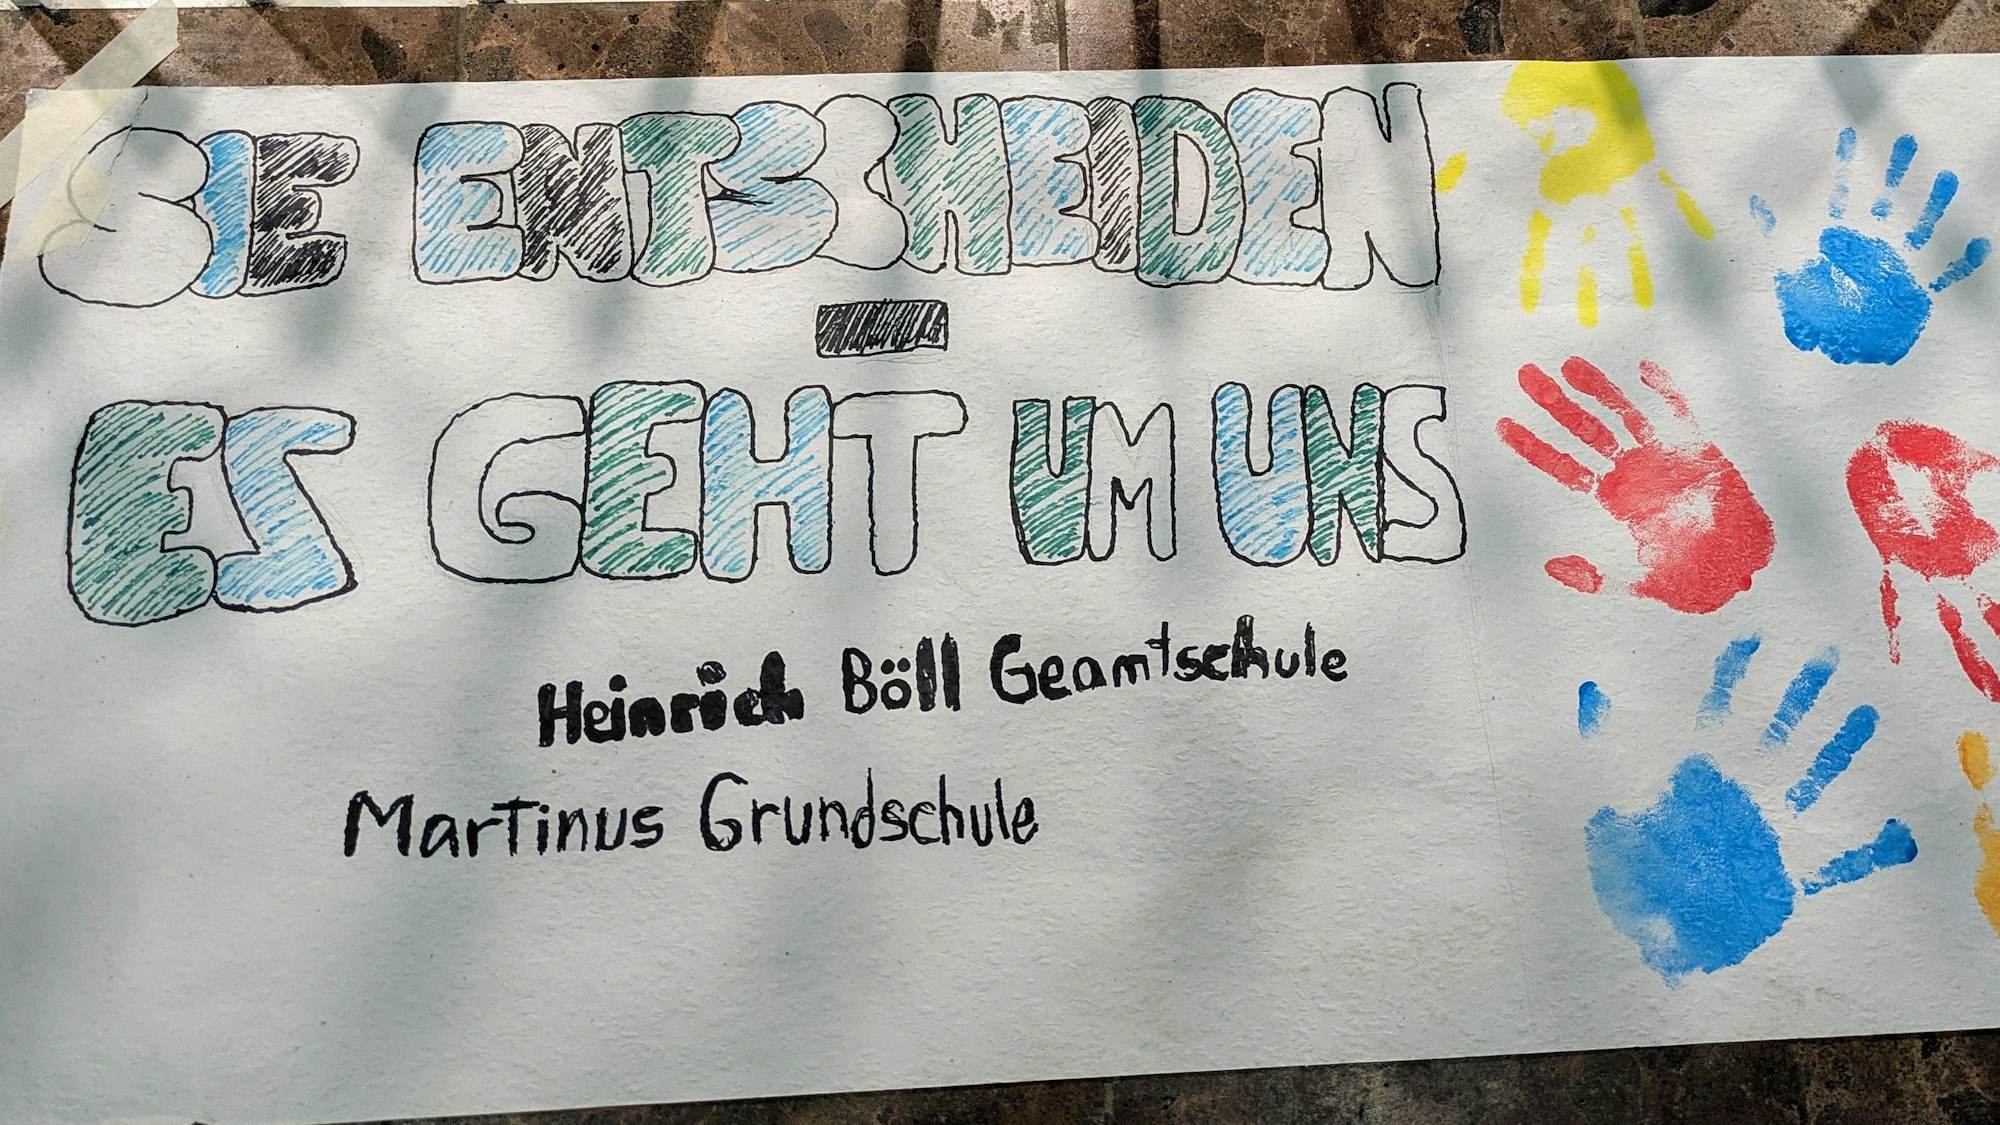 SIE ENTSCHEIDEN
-
ES GEHT UM UNS
Heinrich Böll Geamtschule
Martinus Grundschule